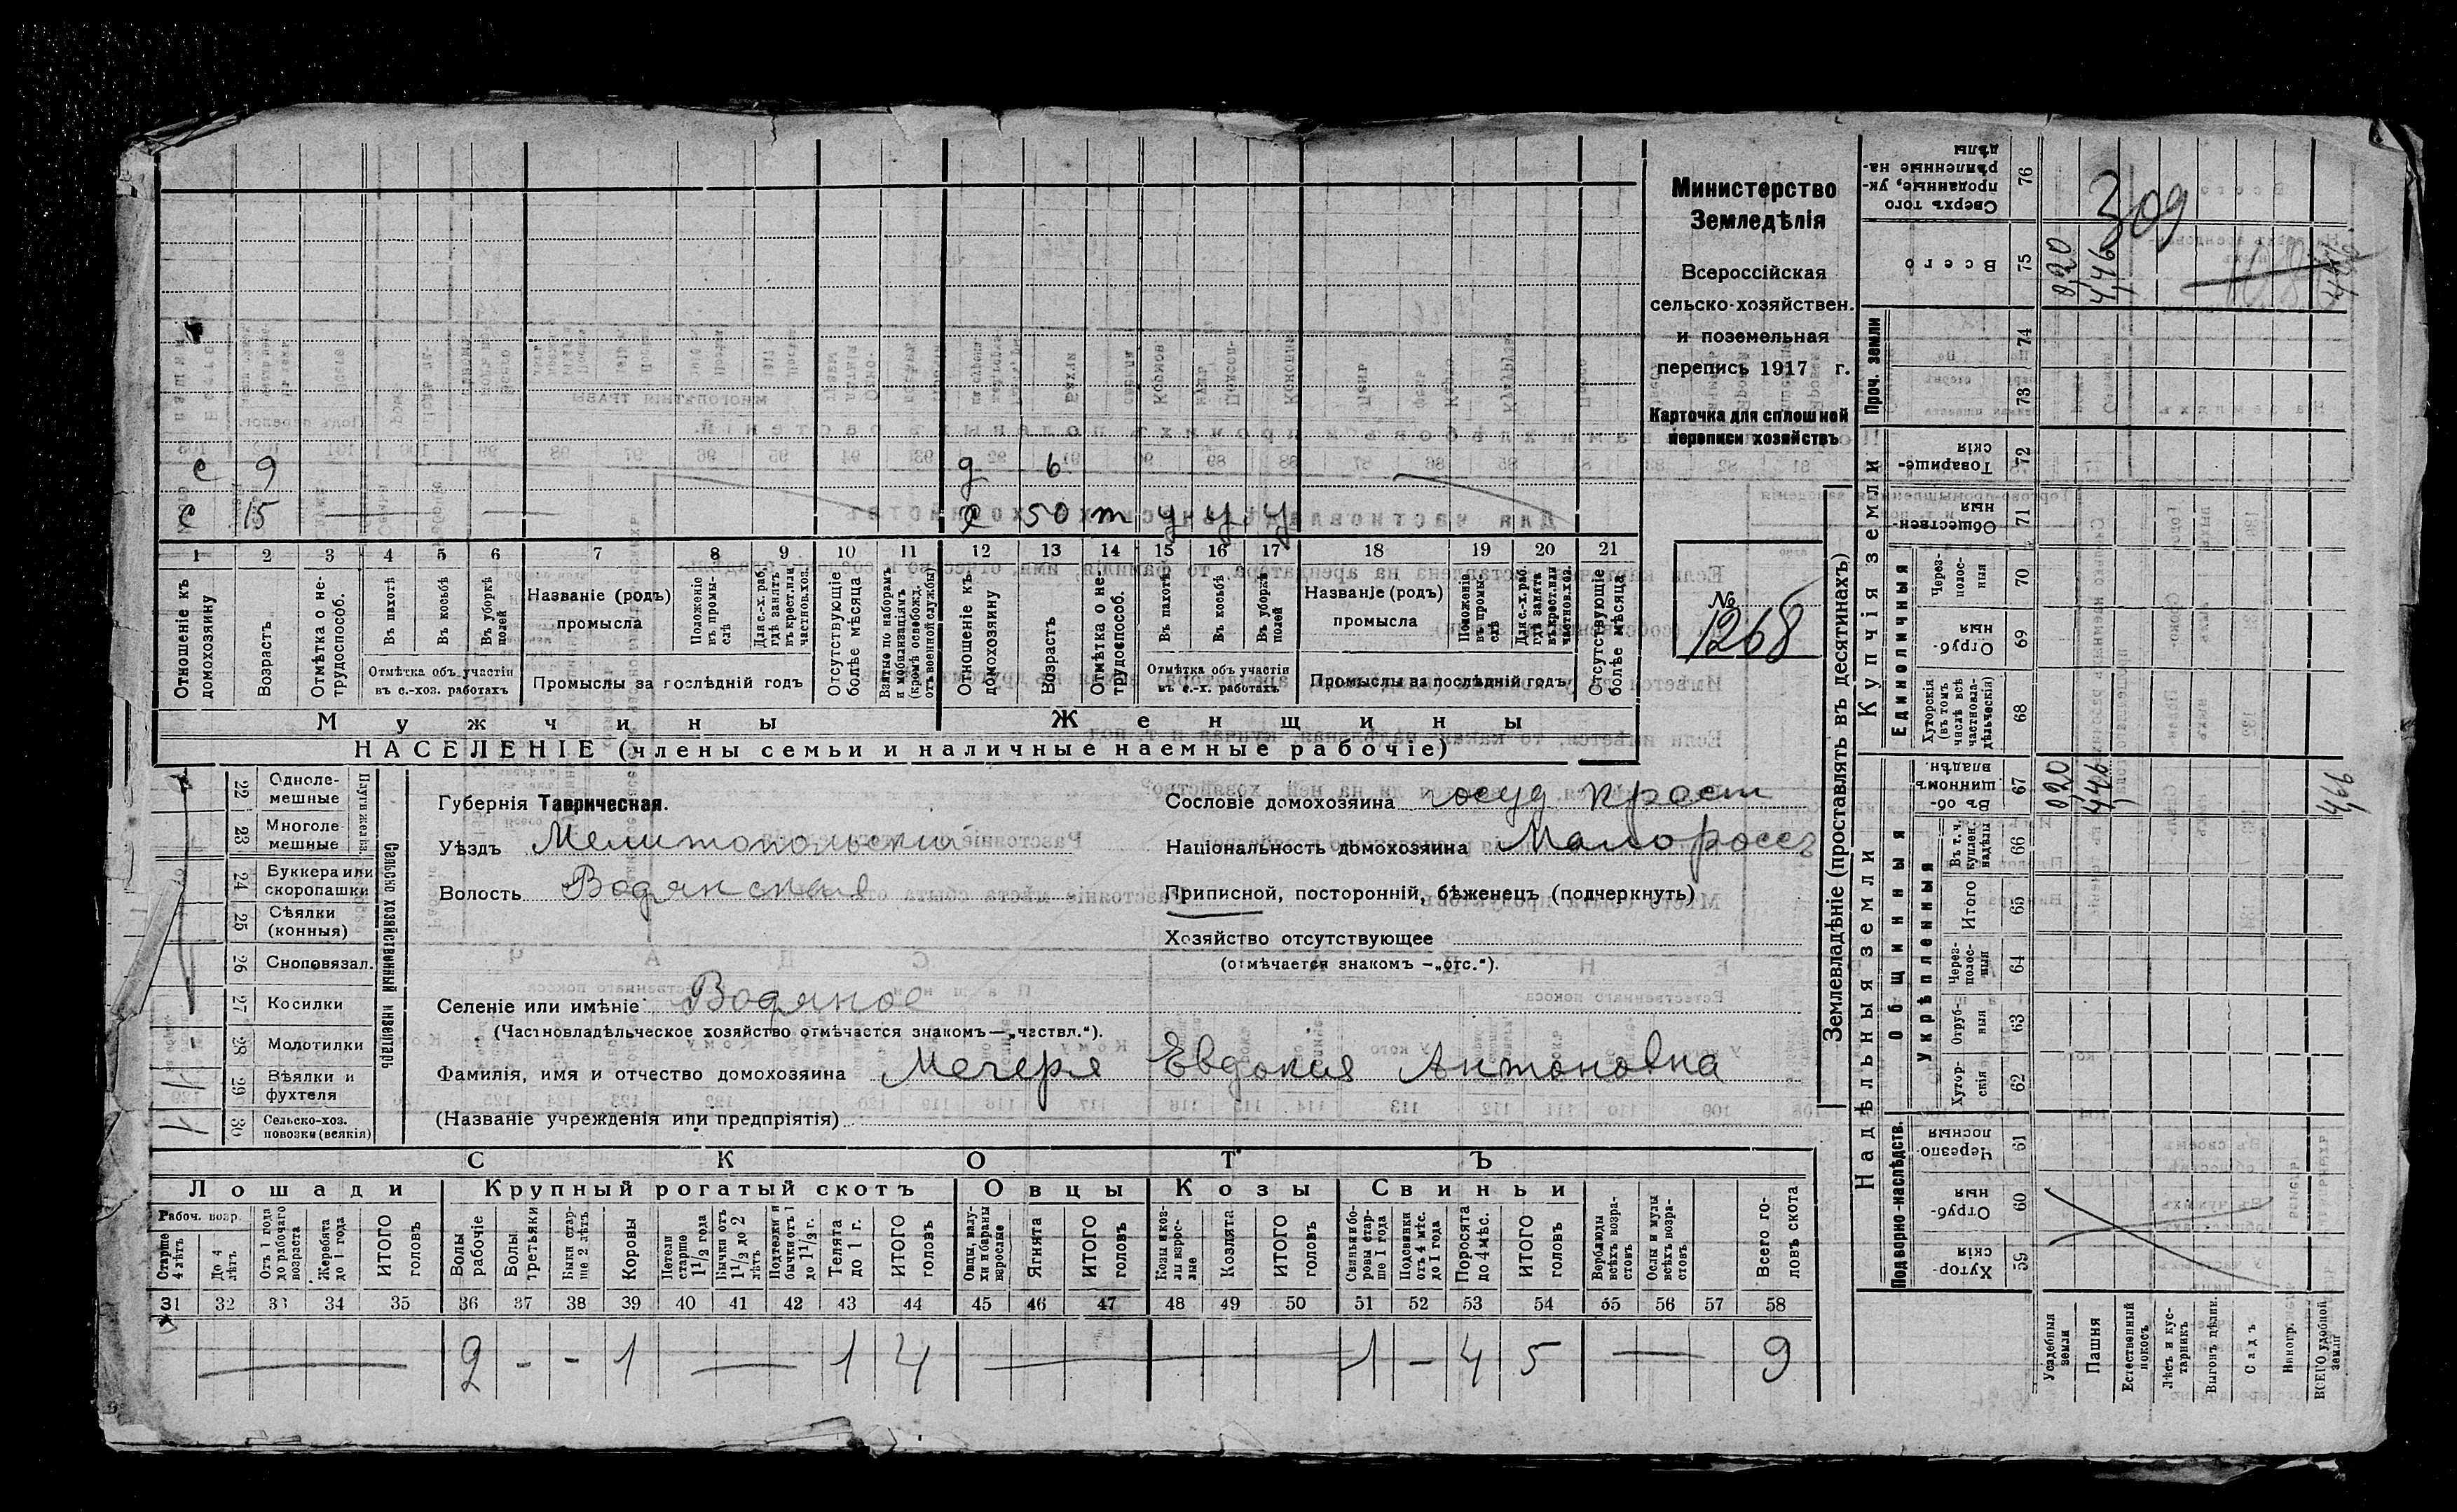 Министерство
Земледѣлія
Всероссійская
сельско-хозяйствен.
и поземельная
перепись 1917 г.
Карточка для сплошной
переписи хозяйствъ
№
1268
с 9
д 6
с 15
х 50 т у у у
1 2 3 4 5 6 7 8 9 10 11 12 13 14 15 16 17 18 19 20 21
Отношеніе къ домохозяину
Возрастъ
Отмѣтка о нетрудоспособ.
Въ пахотѣ
Въ косьбѣ
Въ уборкѣ полей
Отмѣтка объ участіи
въ с.-хоз. работахъ
Названіе (родъ)
промысла
Положеніе въ промыслѣ
Для с.-х. раб. гдѣ занятъ въ крест. или частнов. хоз.
Промыслы за послѣдній годъ
Отсутствующіе болѣе мѣсяца
Взятые по наборамъ и мобилизаціямъ (кромѣ освобожд. отъ военной службы)
Отношеніе къ домохозяину
Возрастъ
Отмѣтка о нетрудоспособ.
Въ пахотѣ
Въ косьбѣ
Въ уборкѣ полей
Отмѣтка объ участіи
въ с.-х. работахъ
Названіе (родъ)
промысла
Положеніе въ промыслѣ
Для с.-х. раб. гдѣ занята въ крест. или частнов. хоз.
Промыслы за послѣдній годъ
Отсутствующіе болѣе мѣсяца
Мужчины
Женщины
НАСЕЛЕНІЕ (члены семьи и наличные наемные рабочіе)
Губернія Таврическая.
Уѣздъ Мелитопольскій
Волость Водянская
Селеніе или имѣніе Водяное
(Частновладѣльческое хозяйство отмѣчается знакомъ—„частвл.“).
Фамилія, имя и отчество домохозяина Мечеря Евдокия Антоновна
(Названіе учрежденія или предпріятія)
Сословіе домохозяина госуд крест
Національность домохозяина Малороссъ
Приписной, посторонній, бѣженецъ (подчеркнуть)
Хозяйство отсутствующее
(отмѣчается знакомъ —„отс.“).
Сельско хозяйственный инвентарь
Плуги желѣз.
22 Однолемешные
23 Многолемешные
24 Буккера или скоропашки
25 Сѣялки (конныя)
26 Сноповязал.
27 Косилки
28 Молотилки -
29 Вѣялки и фухтеля
30 Сельско-хоз. повозки (всякія) 1
СКОТЪ
Лошади
Крупный рогатый скотъ
Овцы
Козы
Свиньи
Рабоч. возр.
Старше 4 лѣтъ
До 4 лѣтъ
Отъ 1 года до рабочаго возраста
Жеребята до 1 года
ИТОГО головъ
Волы рабочіе
Волы третьяки
Быки старше 2 лѣтъ
Коровы
Нетели старше 1½ года
Бычки отъ 1½ до 2 лѣтъ
Подтелки и бычки отъ 1 до 1½ г.
Телята до 1 г.
ИТОГО головъ
Овцы, валухи и бараны взрослые
Ягнята
ИТОГО головъ
Козы и козлы взрослые
Козлята
ИТОГО головъ
Свиньи и боровы старше 1 года
Подсвинки отъ 4 мѣс. до 1 года
Поросята до 4 мѣс.
ИТОГО головъ
Верблюды всѣхъ возрастовъ
Ослы и мулы всѣхъ возрастовъ
Всего головъ скота
31 32 33 34 35 36 37 38 39 40 41 42 43 44 45 46 47 48 49 50 51 52 53 54 55 56 57 58
2 - - 1 — 1 4 — 1 - 4 5 — 9
Землевладѣніе (проставлять въ десятинахъ)
Надѣльныя земли
Купчія земли
Проч. земли
Подворно-наслѣдств.
Общинныя
Укрѣпленныя
Единоличныя
76 Сверхъ того проданные, укрѣпленные надѣлы
75 Всего
74
73
72 Товарищескія
71 Общественныя
70 Черезполосныя
69 Отрубныя
68 Хуторскія (въ томъ числѣ всѣ частновладѣльческія)
67 Въ общинномъ владѣн.
66 Въ т. ч. куплен. надѣлы
65 Итого
64 Черезполосныя
63 Отрубныя
62 Хуторскія
61 Черезполосныя
60 Отрубныя
59 Хуторскія
309
0,20
4,46
0,20
4,46
4,66
Усадебныя земли
Пашня
Естественный покосъ
Лѣсъ и кустарникъ
Выгонъ дѣлим.
Садъ
Виногр.
ВСЕГО удобной земли